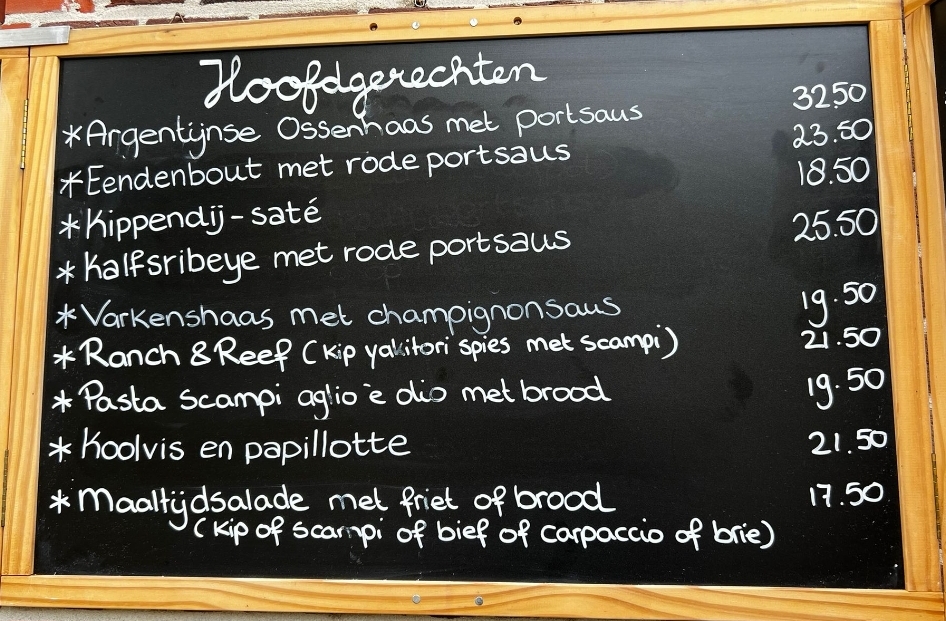 Hoofdgerechten
* Argentijnse Ossenhaas met portsaus 32.50
* Eendenbout met rode portsaus 23.50
* Kippendij - saté 18.50
* Kalfsribeye met rode portsaus 25.50
* Varkenshaas met champignonsaus 19.50
* Ranch & Reef (kip yakitori spies met scampi) 21.50
* Pasta scampi aglio è olio met brood 19.50
* Koolvis en papillotte 21.50
* Maaltijdsalade met friet of brood 17.50
(kip of scampi of bief of carpaccio of brie)